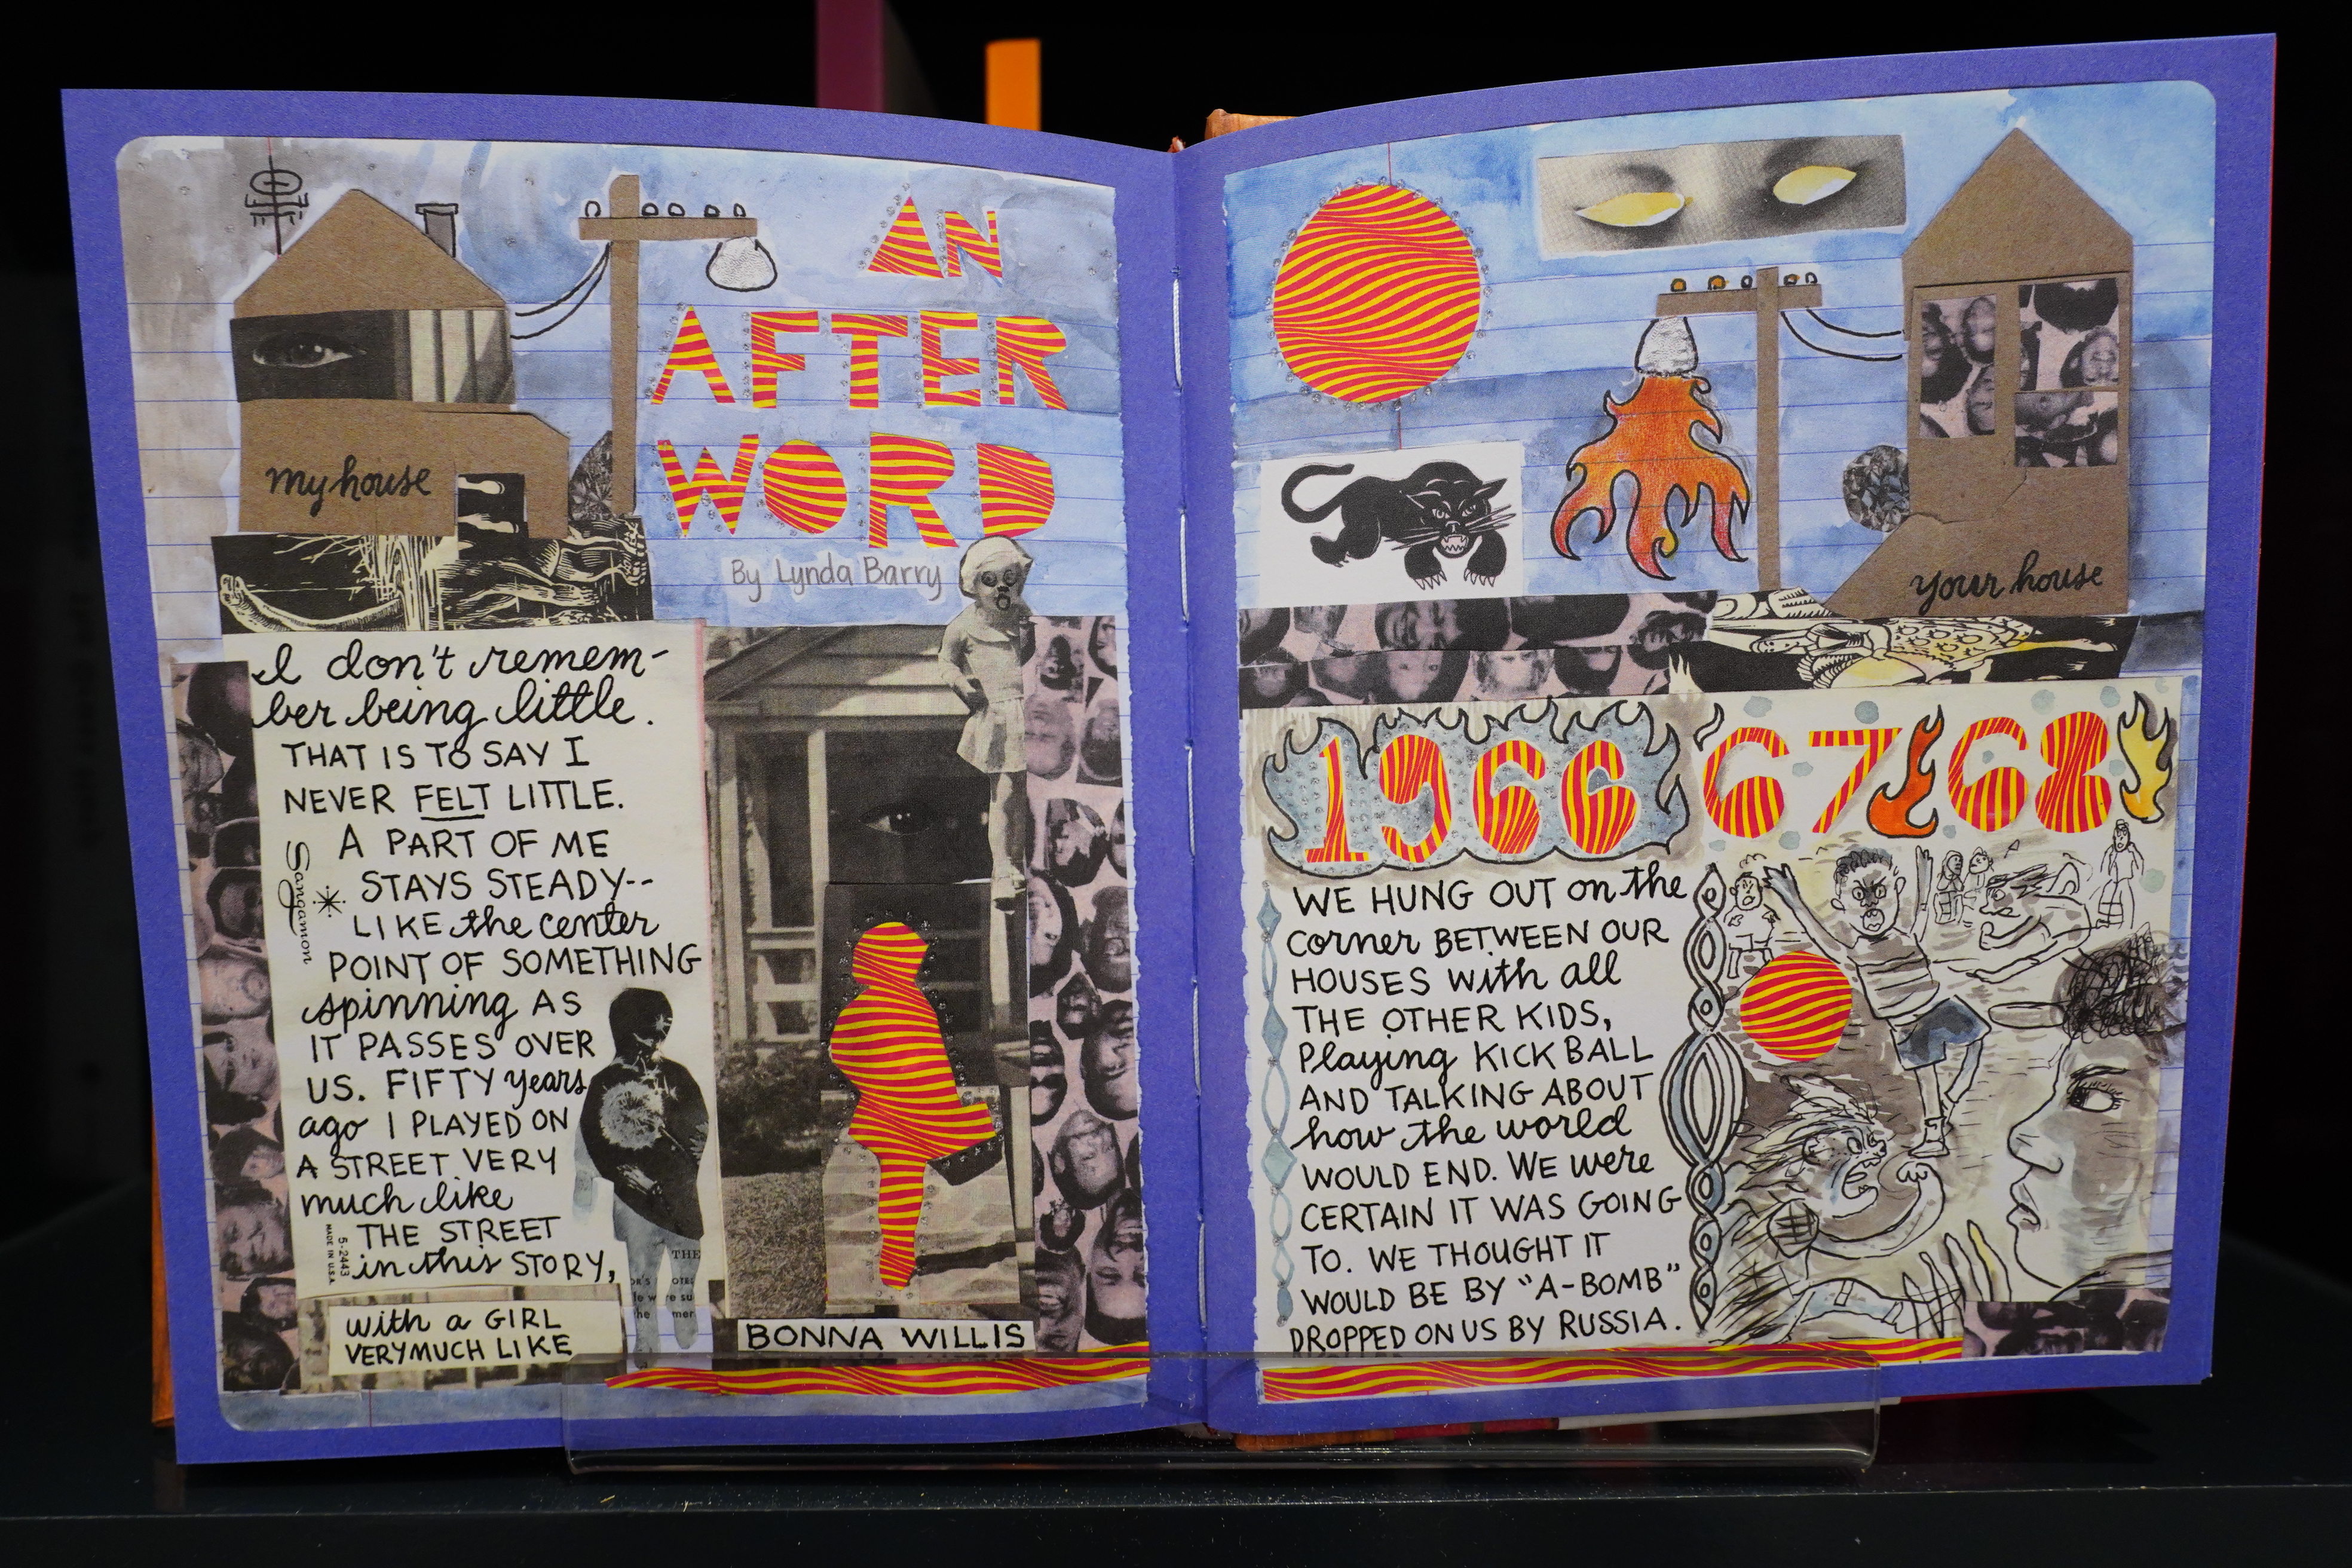 AN
AFTER
WORD
By Lynda Barry
my house
I don't remem-
ber being little.
THAT IS TO SAY I
NEVER FELT LITTLE.
A PART OF ME
STAYS STEADY--
LIKE the center
POINT OF SOMETHING
spinning AS
IT PASSES OVER
US. FIFTY years
ago I PLAYED ON
A STREET VERY
much like
THE STREET
in this STORY,
with a GIRL
VERY MUCH LIKE
Sangamon
5-2443
MADE IN U.S.A.
THE
BONNA WILLIS
your house
1966 67 68
WE HUNG OUT on the
corner BETWEEN OUR
HOUSES with all
THE OTHER KIDS,
Playing KICK BALL
AND TALKING ABOUT
how the world
WOULD END. WE were
CERTAIN IT WAS GOING
TO. WE THOUGHT IT
WOULD BE BY "A-BOMB"
DROPPED ON US BY RUSSIA.